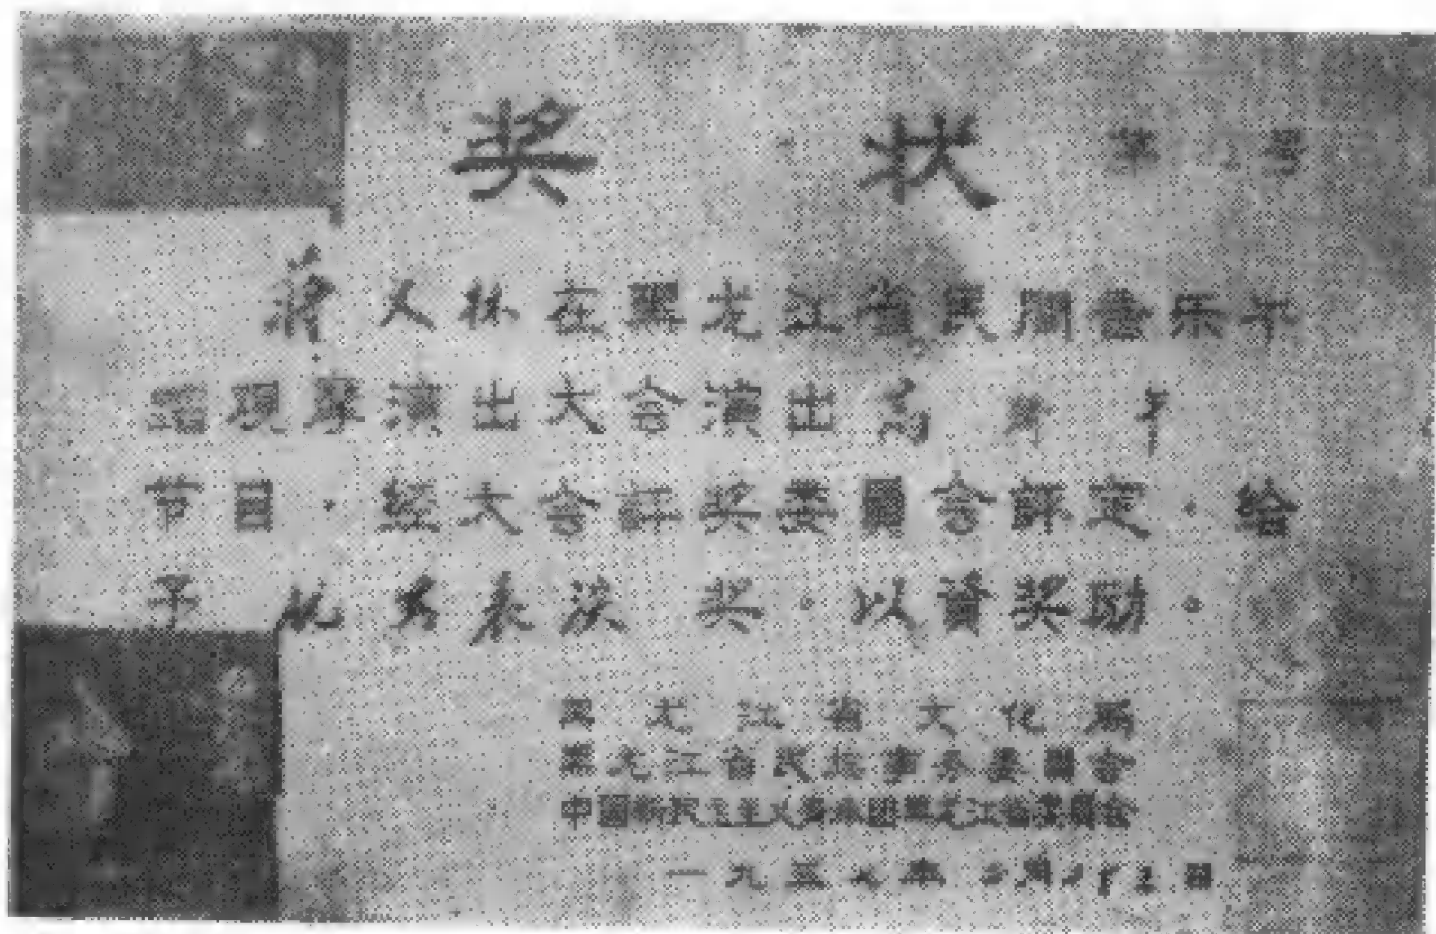 奖 状 第 号
蒋义林在黑龙江省民間音乐午
蹈观摩演出大会演出高
节目·經大会評奖委員会評定·給
予 优秀表演 奖·以資奖励·
黑龙江省文化局
黑龙江省民族事务委員会
中国新民主主义青年团黑龙江省委員会
一九五七年 月 日